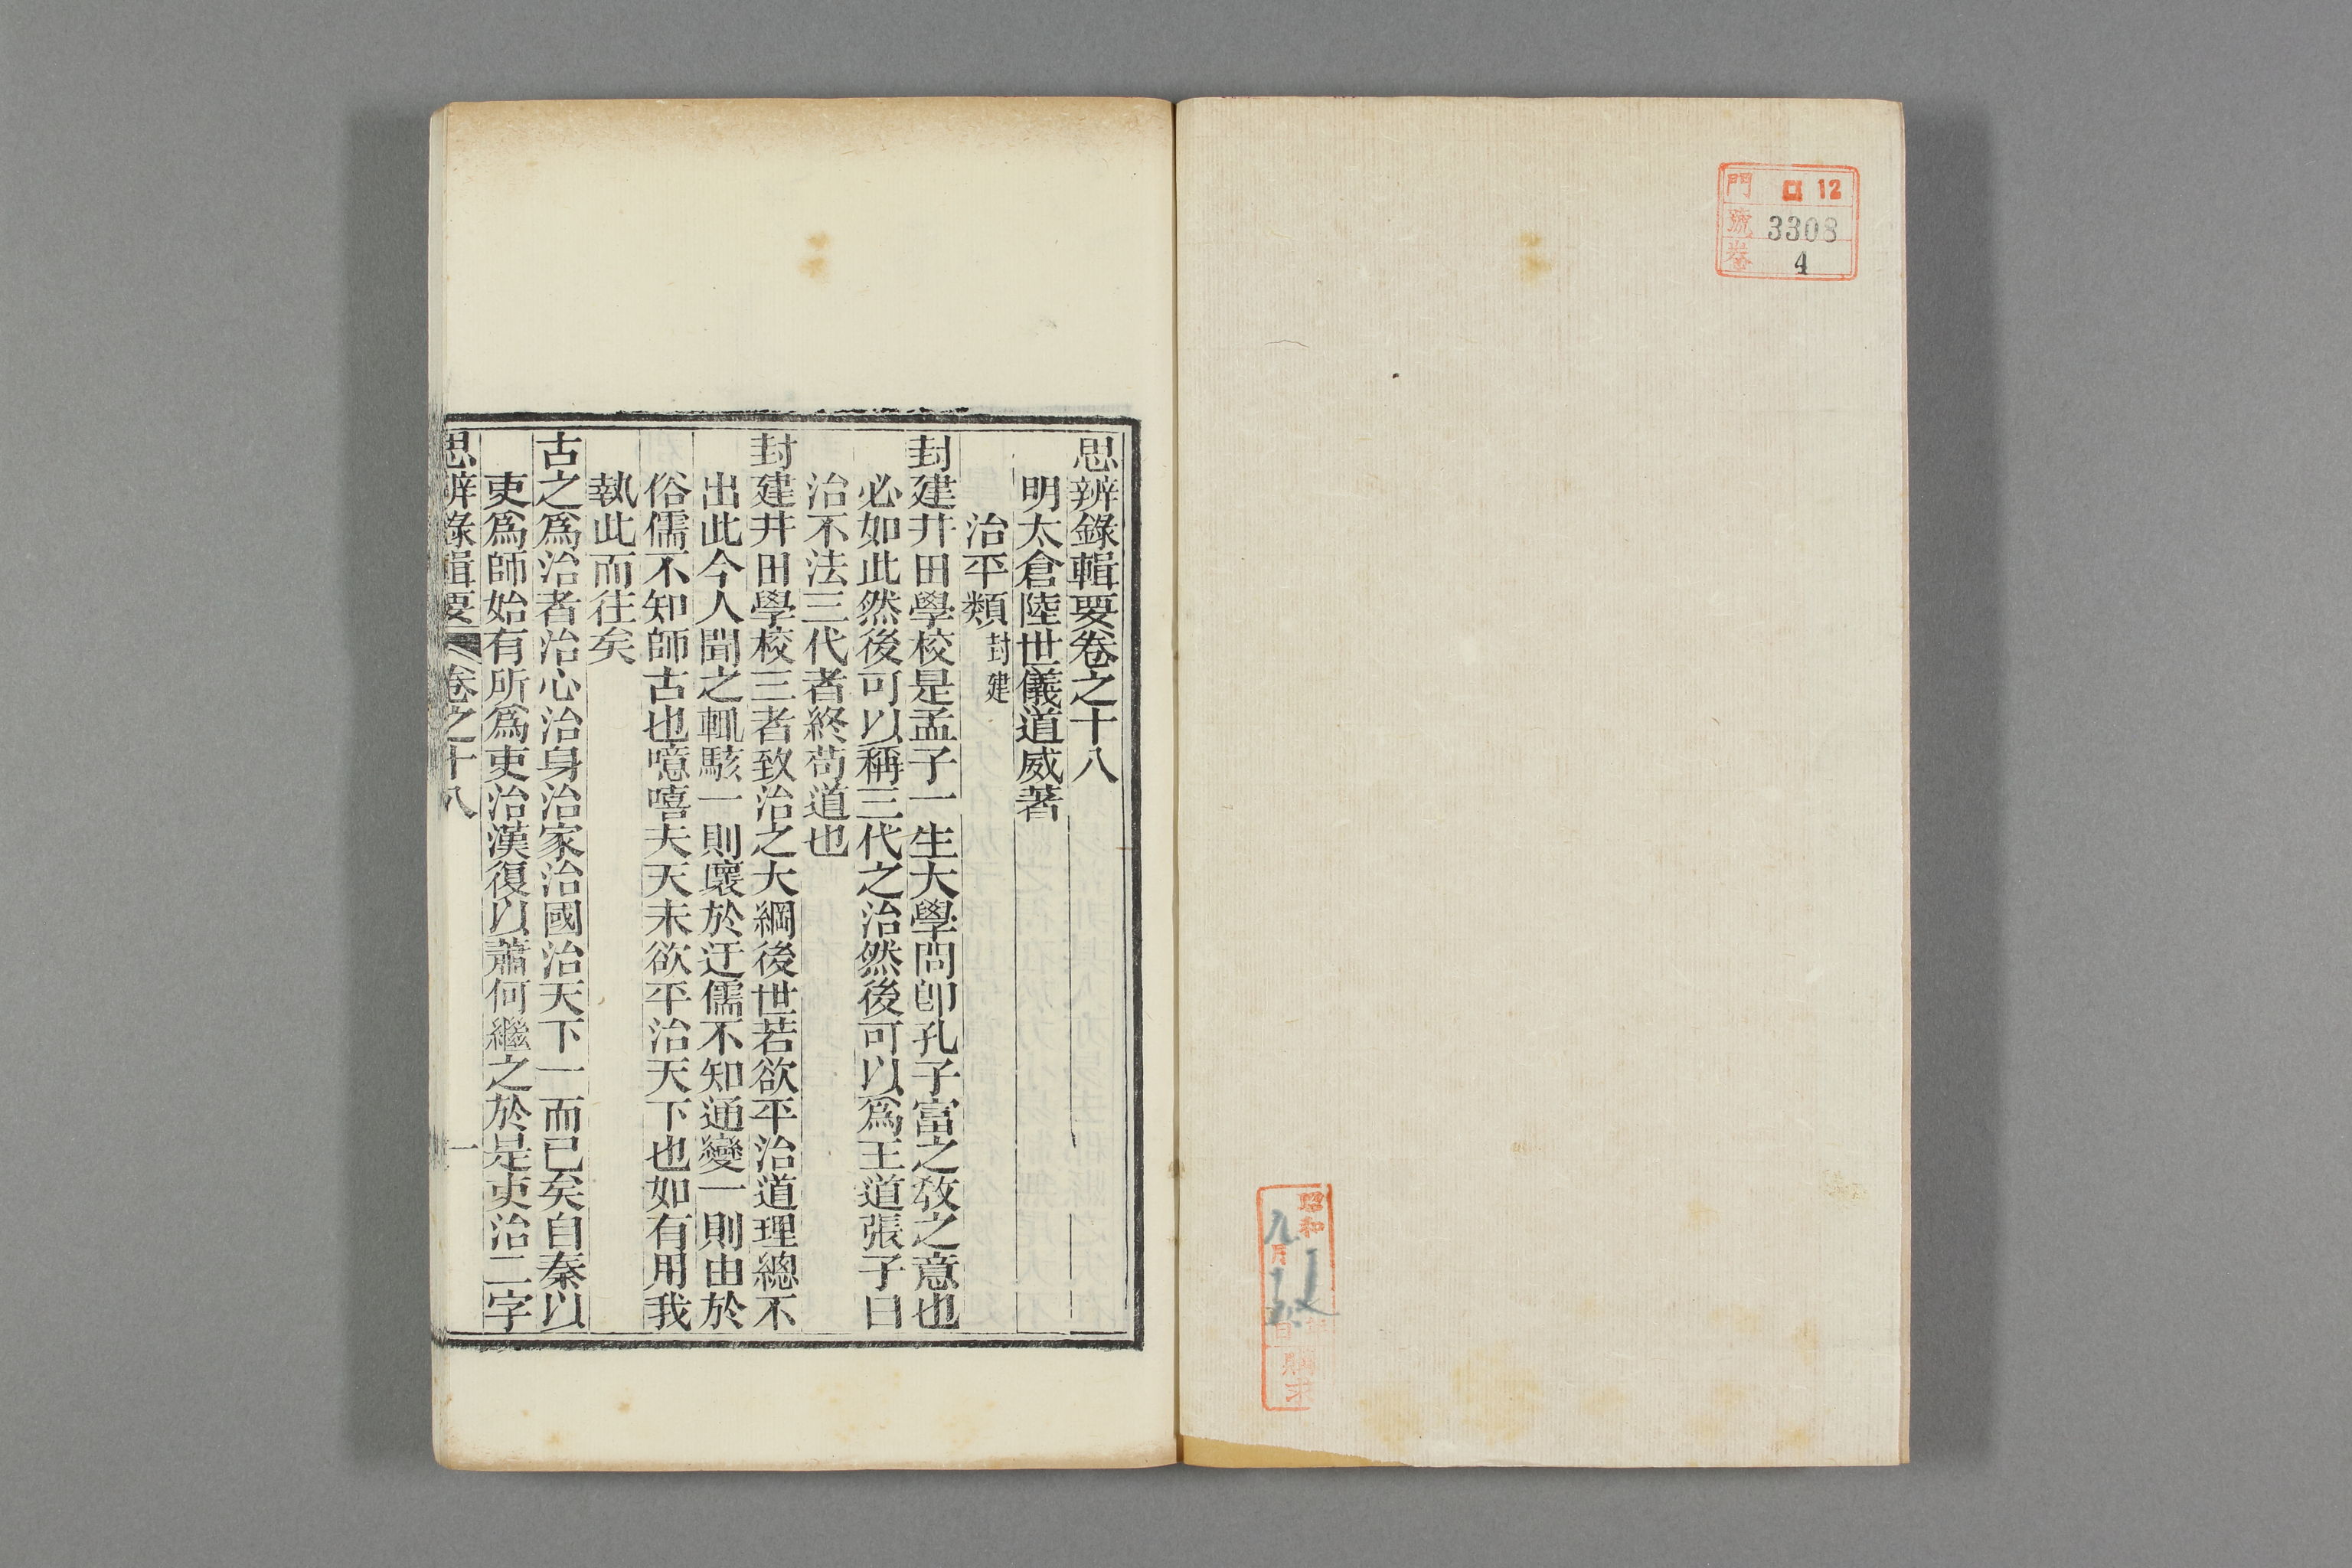 門 ロ 12
號 3308
卷 4
昭和
月
購求
思辨錄輯要卷之十八
明太倉陸世儀道威著
治平類 封建
封建井田學校是孟子一生大學問卽孔子富之敎之意也
必如此然後可以稱三代之治然後可以爲王道張子曰
治不法三代者終苟道也
封建井田學校三者致治之大綱後世若欲平治道理總不
出此今人聞之輒駭一則壞於迂儒不知通變一則由於
俗儒不知師古也噫嘻夫天未欲平治天下也如有用我
執此而往矣
古之爲治者治心治身治家治國治天下一而已矣自秦以
吏爲師始有所爲吏治漢復以蕭何繼之於是吏治二字
思辨錄輯要 卷之十八 一